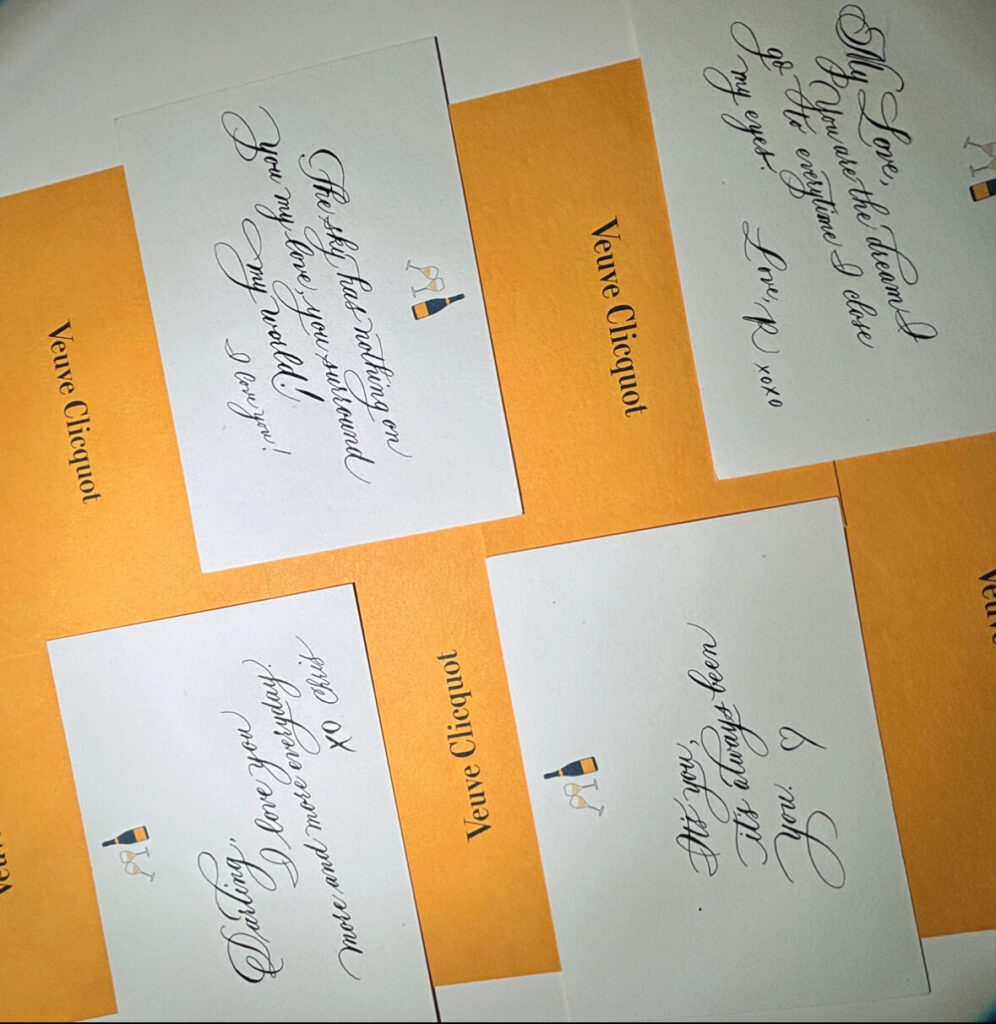 My Love,
You are the dream I
go to everytime I close
my eyes.
Love, R xoxo
The sky has nothing on
You my love, you surround
my world!
I love you!
Darling,
I love you
more and more everyday.
xo Chris
It's you,
it's always been
you.
Veuve Clicquot
Veuve Clicquot
Veuve Clicquot
Veuve
Veuve